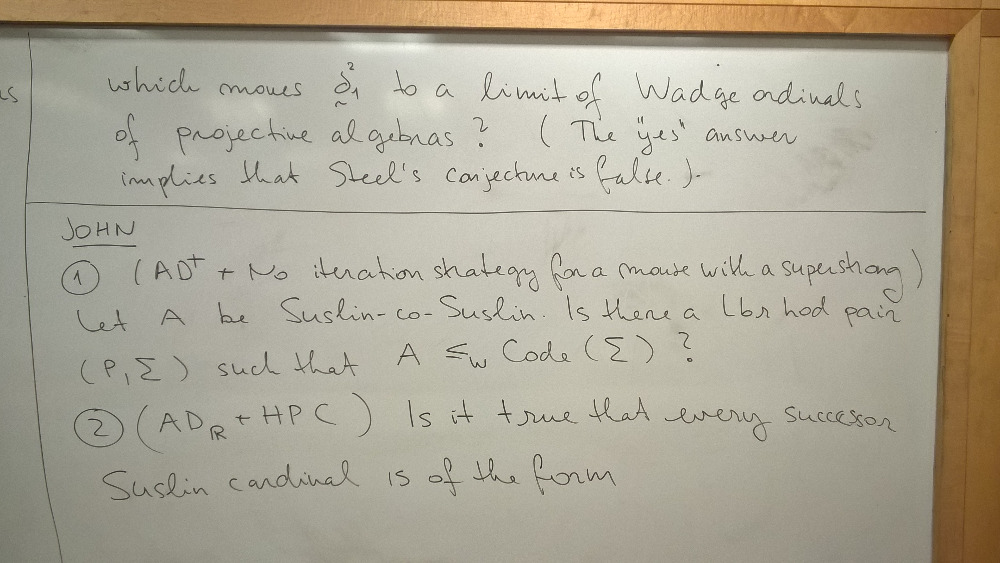 which moves δ̰²₁ to a limit of Wadge ordinals
of projective algebras? (The "yes" answer
implies that Steel's conjecture is false.).
JOHN
① (AD⁺ + No iteration strategy for a mouse with a superstrong)
Let A be Suslin-co-Suslin. Is there a lbr hod pair
(P, Σ) such that A ≤_W Code (Σ)?
② (AD_ℝ + HPC) Is it true that every successor
Suslin cardinal is of the form